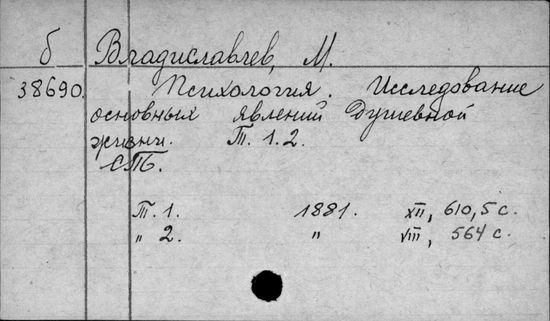 б Владиславлев, М.
38690. Психология. Исследование
основных явлений душевной
жизни. Т. 1.2.
СПб.
Т. 1. 1881. XII, 610,5 с.
" 2. " VIII, 564 с.